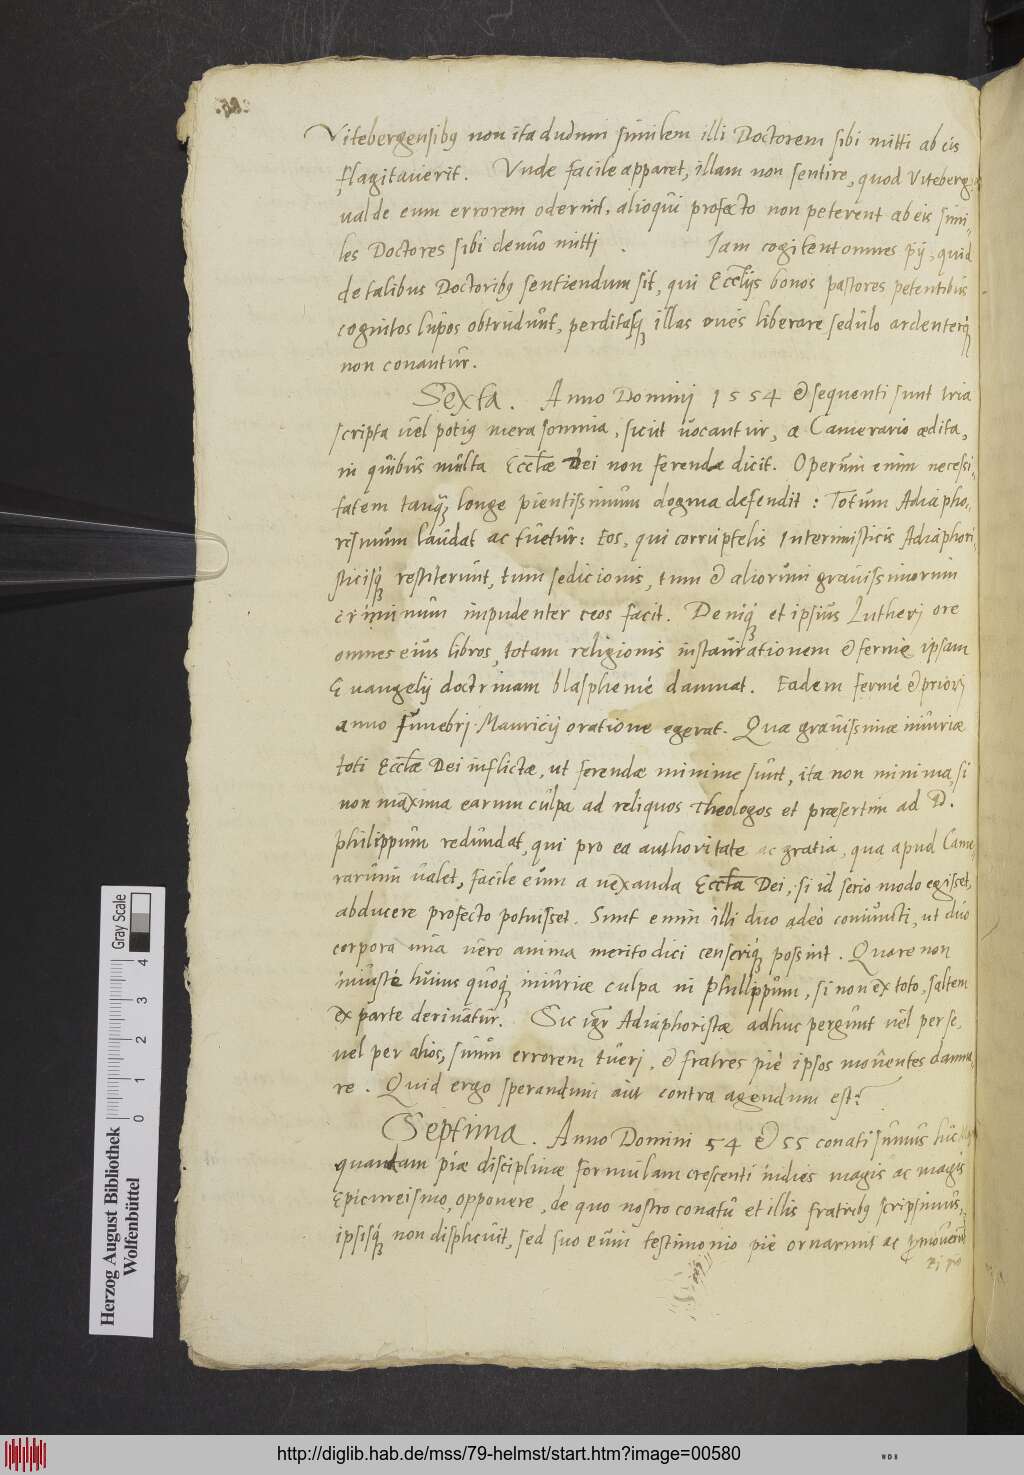 Vitebergensibꝯ non ita dudum similem illi Doctorem sibi mitti ab eis
flagitauerit. Vnde facile apparet, illam non sentire, quod Viteberg
ualde eum errorem oderint, alioqui profecto non peterent ab eis simi-
les Doctores sibi denuo mittj. Jam cogitent omnes pij, quid
de talibus Doctoribꝯ sentiendum sit, qui Eccl̃ijs bonos pastores petentibus
cognitos lupos obtrudunt, perditasqꝫ illas oues liberare sedulo ardenterqꝫ
non conantur.
Sexta. Anno Dominj 1554 & sequenti sunt tria
scripta uel potiꝯ mera somnia, sicut uocantur, a Camerario ædita,
in quibus multa Eccl̃æ Dei non ferenda dicit. Operum enim necessi-
tatem tanqꝫ longe pientissimum dogma defendit: Totum Adiapho-
rismum laudat ac tuetur: Eos, qui corruptelis Interimisticis Adiaphori-
sticisqꝫ restiterunt, tum sedicionis, tum & aliorum grauissimorum
criminum impudenter reos facit. Deniqꝫ et ipsius Lutherj ore
omnes eius libros, totam religionis instaurationem & fermè ipsam
Euangelij doctrinam blasphemè damnat. Eadem fermè & priorj
anno funebrj Mauricij oratione egerat. Quæ grauissimæ iniuriæ
toti Eccl̃æ Dei inflictæ, ut ferendæ minime sunt, ita non minima, si
non maxima earum culpa ad reliquos Theologos et præsertim ad D.
Philippum redundat, qui pro ea authoritate ac gratia, qua apud Came-
rarium ualet, facile eum a uexanda Eccl̃a Dei, si id serio modo egisset,
abducere profecto potuisset. Sunt enim illi duo adeò coniuncti, ut duo
corpora una uero anima merito dici censeriqꝫ possint. Quare non
iniustè huius quoqꝫ iniuriæ culpa in Philippum, si non ex toto, saltem
ex parte deriuatur. Sic igr̃ Adiaphoristæ adhuc pergunt uel per se,
uel per alios, suum errorem tuerj, & fratres piè ipsos monentes damna-
re. Quid ergo sperandum aut contra agendum est?
Septima. Anno Domini 54 & 55 conati sumus huc
quandam piæ disciplinæ formulam crescenti indies magis ac magis
Epicureismo, opponere, de quo nostro conatu et illis fratribꝯ scripsimus,
ipsisqꝫ non displicuit, sed suo eum testimonio piè ornarunt ac ꝓmouerunt
Herzog August Bibliothek
Wolfenbüttel
Gray Scale
0 1 2 3 4
http://diglib.hab.de/mss/79-helmst/start.htm?image=00580